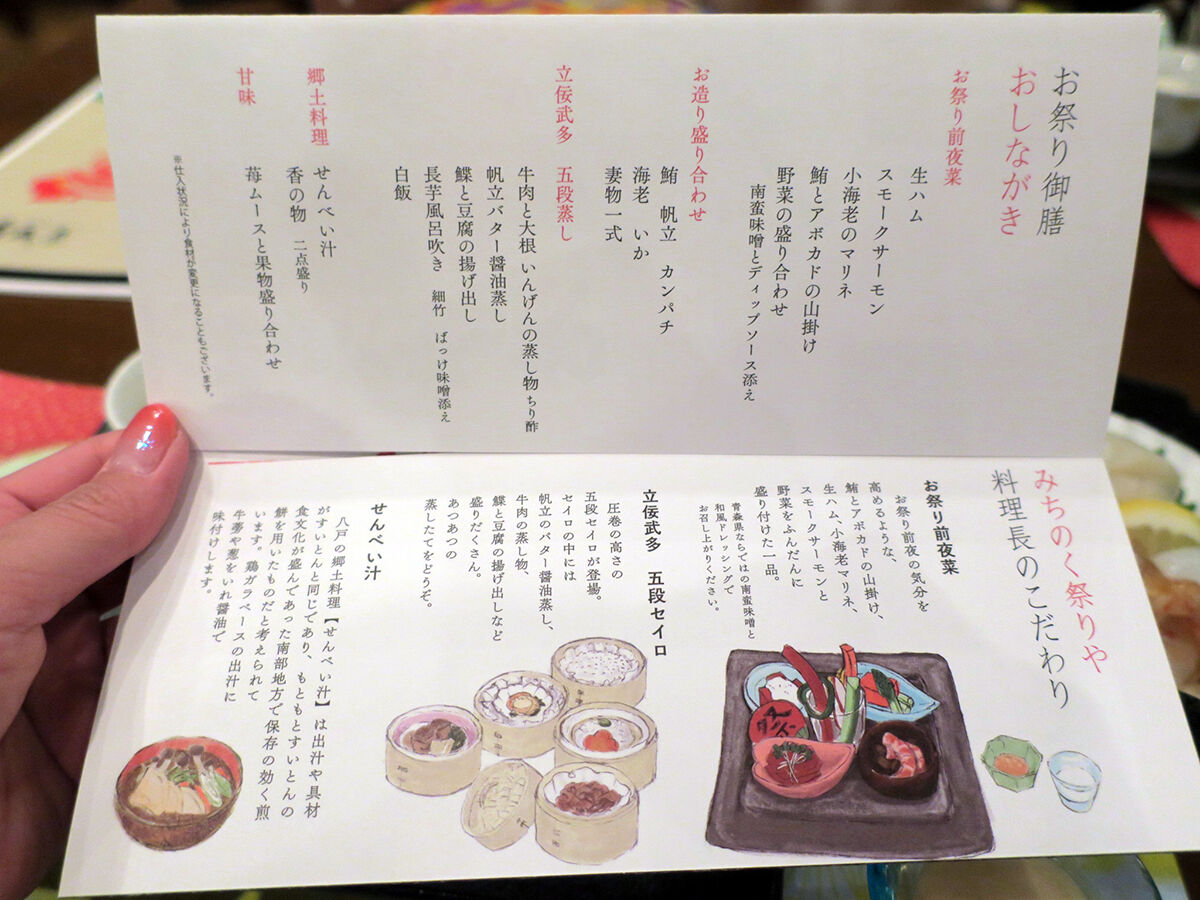 お祭り御膳
おしながき
お祭り前夜菜
生ハム
スモークサーモン
小海老のマリネ
鮪とアボカドの山掛け
野菜の盛り合わせ
南蛮味噌とディップソース添え
お造り盛り合わせ
鮪 帆立 カンパチ
海老 いか
妻物一式
立佞武多 五段蒸し
牛肉と大根 いんげんの蒸し物 ちり酢
帆立バター醤油蒸し
鰈と豆腐の揚げ出し
長芋風呂吹き 細竹 ばっけ味噌添え
白飯
郷土料理
せんべい汁
香の物 二点盛り
甘味
苺ムースと果物盛り合わせ
※仕入状況により食材が変更になることもございます。
みちのく祭りや
料理長のこだわり
お祭り前夜菜
お祭り前夜の気分を
高めるような、
鮪とアボカドの山掛け、
生ハム、小海老マリネ、
スモークサーモンと
野菜をふんだんに
盛り付けた一品。
青森県ならではの南蛮味噌と
和風ドレッシングで
お召し上がりください。
立佞武多 五段セイロ
圧巻の高さの
五段セイロが登場。
セイロの中には
帆立のバター醤油蒸し、
牛肉の蒸し物、
鰈と豆腐の揚げ出しなど
盛りだくさん。
あつあつの
蒸したてをどうぞ。
せんべい汁
八戸の郷土料理【せんべい汁】は出汁や具材
がすいとんと同じであり、もともとすいとんの
食文化が盛んであった南部地方で保存の効く煎
餅を用いたものだと考えられて
います。鶏ガラベースの出汁に
牛蒡や葱をいれ醤油で
味付けします。